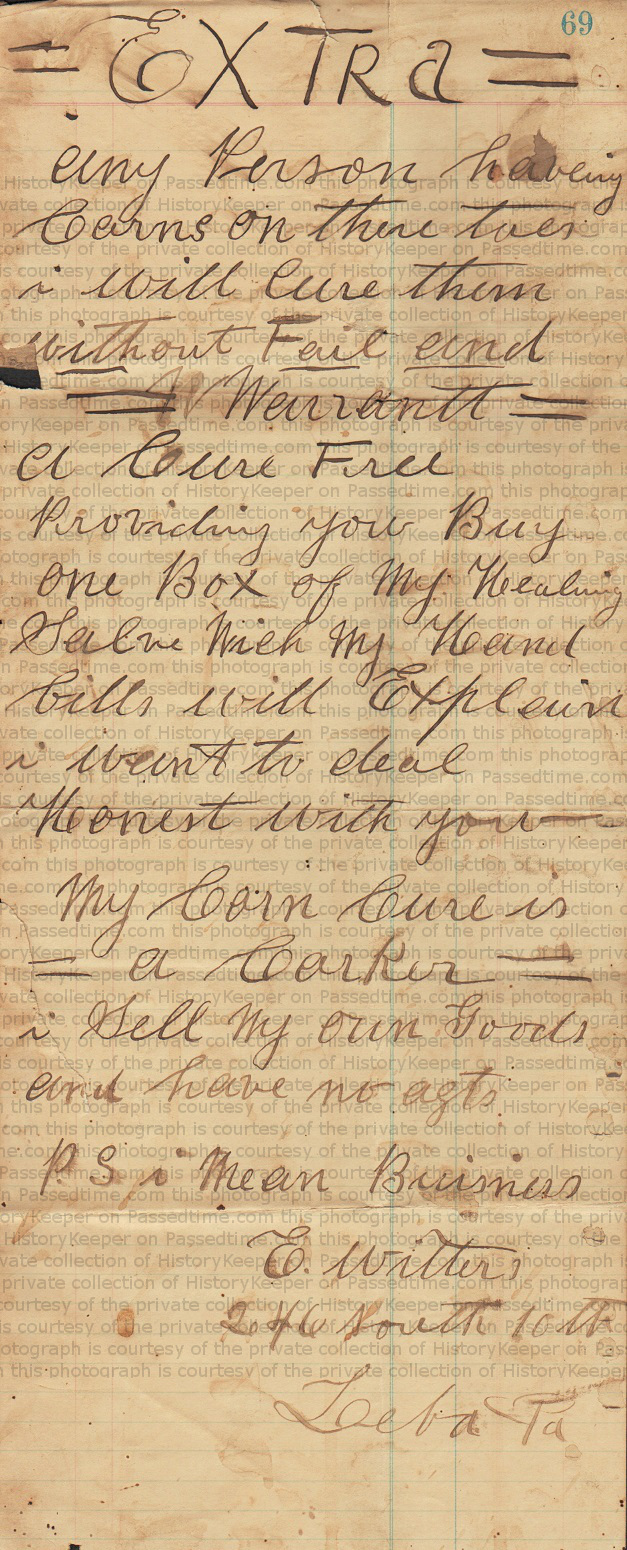 69
= EXTRa =
any Person haveing
Corns on there toes
i will Cure them
without Fail and
= Warrantt =
a Cure Free
Providing you Buy
one Box of My Healing
Salve Wich My Hand
bills will Explain
i want to deal
Honest with you —
My Corn Cure is
= a Corker =
i Sell My own Goods
and have no agts
P. S i Mean Buisness
E. Witters
246 South 10th
Leba Pa
this photograph is courtesy of the private collection of HistoryKeeper on Passedtime.com